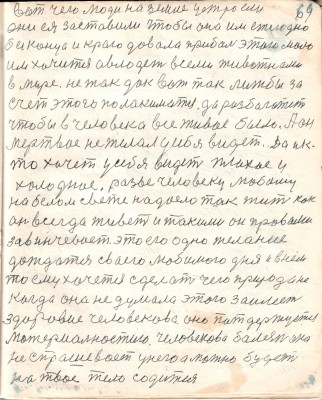 69
Вот чего люди на земле у природы
дни ся заставили чтобы она им ежегодно
без конца и краю давала прибыл этого мало
им хочится овладеть всеми животными
в мире. не так дак вот так лижбы за
счет этого полакимится, да разбагатет
чтобы в человека все живое было. А он
мертвое не желал у себя видет. Да и к-
то хочет у себя видет плихое и
холодное, разве человеку любому
на белом свете надоело так жить как
он всегда живет и такими он правами
завинчевает это его одно желание
дождатся своего любимого дня в нём
то ему хочется сделат чего природа но
когда она не думала этого заимеет
здоровие человекова оно поддержуется
материалностию. человекова балезн она
не спрашевает у него а можно будет
на твое тело садится